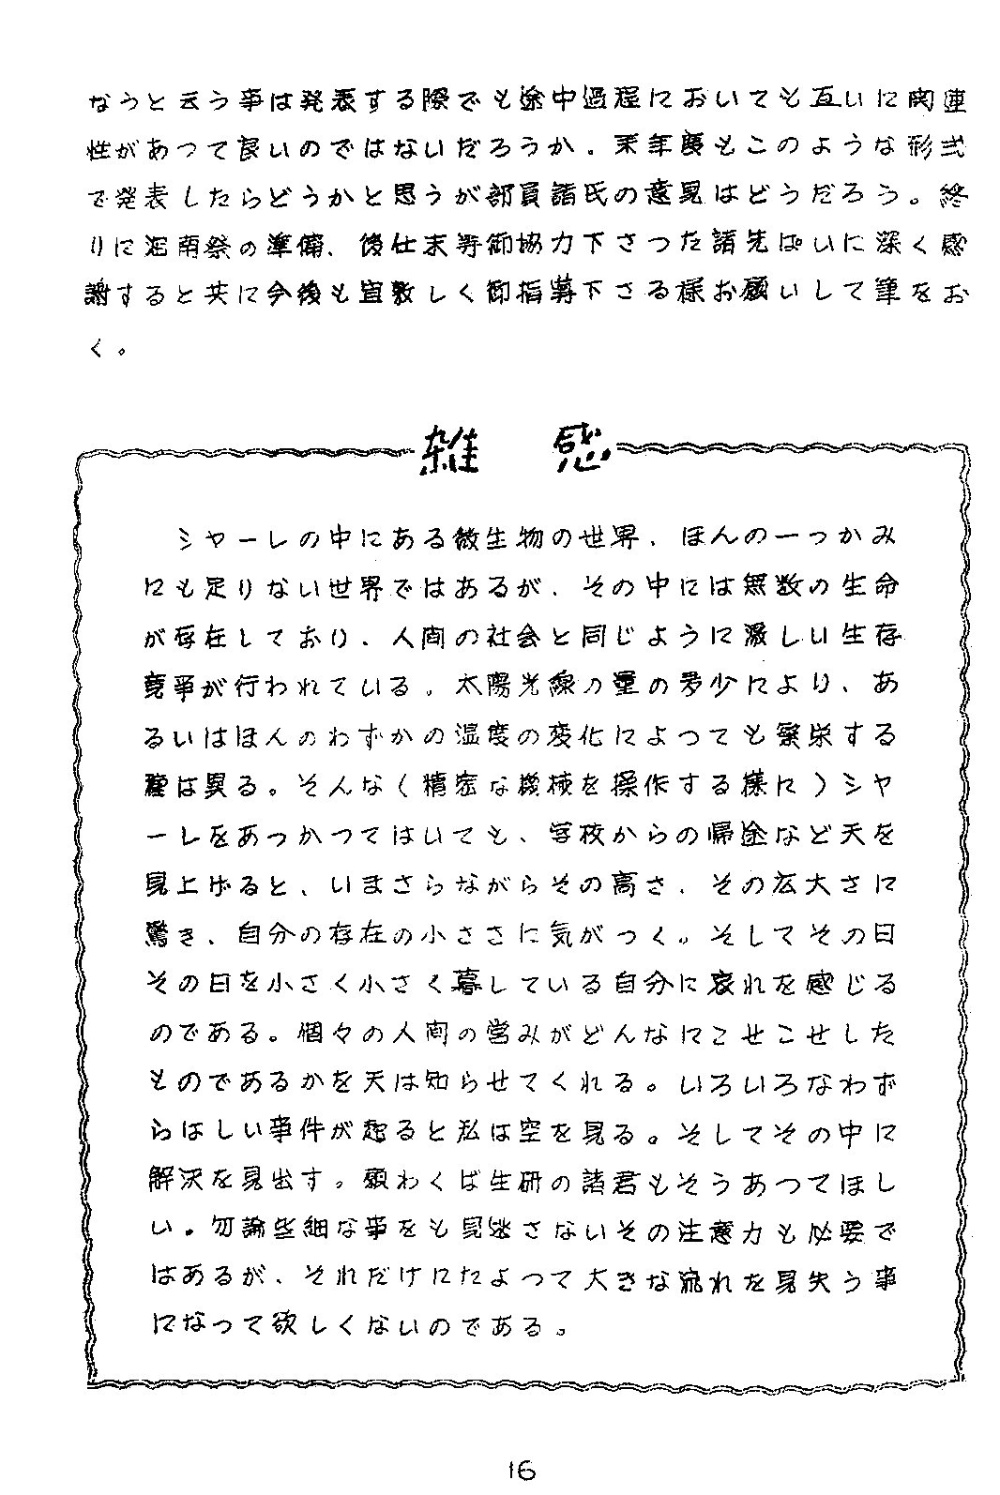 なうと云う事は発表する際でも途中過程においても互いに関連
性があつて良いのではないだろうか。来年度もこのような形式
で発表したらどうかと思うが部員諸氏の意見はどうだろう。終
りに湘南祭の準備、後仕末等御協力下さつた諸先ぱいに深く感
謝すると共に今後も宜敷しく御指導下さる様お願いして筆をお
く。
雑 感
シャーレの中にある微生物の世界、ほんの一つかみ
にも足りない世界ではあるが、その中には無数の生命
が存在しており、人間の社会と同じように激しい生存
競争が行われている。太陽光線の量の多少により、あ
るいはほんのわずかの温度の変化によつても繁栄する
種は異る。そんな(精密な機械を操作する様に)シャ
ーレをあつかつてはいても、学校からの帰途など天を
見上げると、いまさらながらその高さ、その広大さに
驚き、自分の存在の小ささに気がつく。そしてその日
その日を小さく小さく暮している自分に哀れを感じる
のである。個々の人間の営みがどんなにこせこせした
ものであるかを天は知らせてくれる。いろいろなわず
らはしい事件が起ると私は空を見る。そしてその中に
解決を見出す。願わくば生研の諸君もそうあつてほし
い。勿論些細な事をも見逃さないその注意力も必要で
はあるが、それだけにたよつて大きな流れを見失う事
になって欲しくないのである。
16